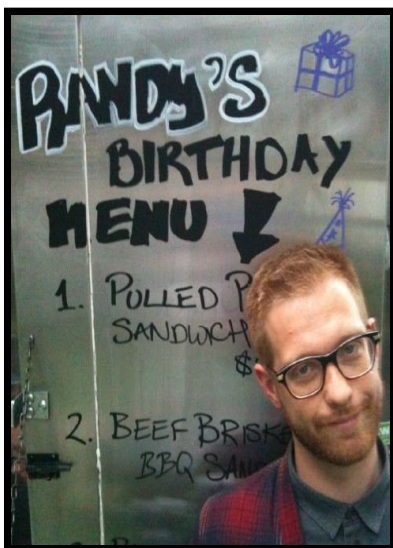 RANDY'S
BIRTHDAY
MENU
1. PULLED
SANDWICH
$
2. BEEF
BBQ